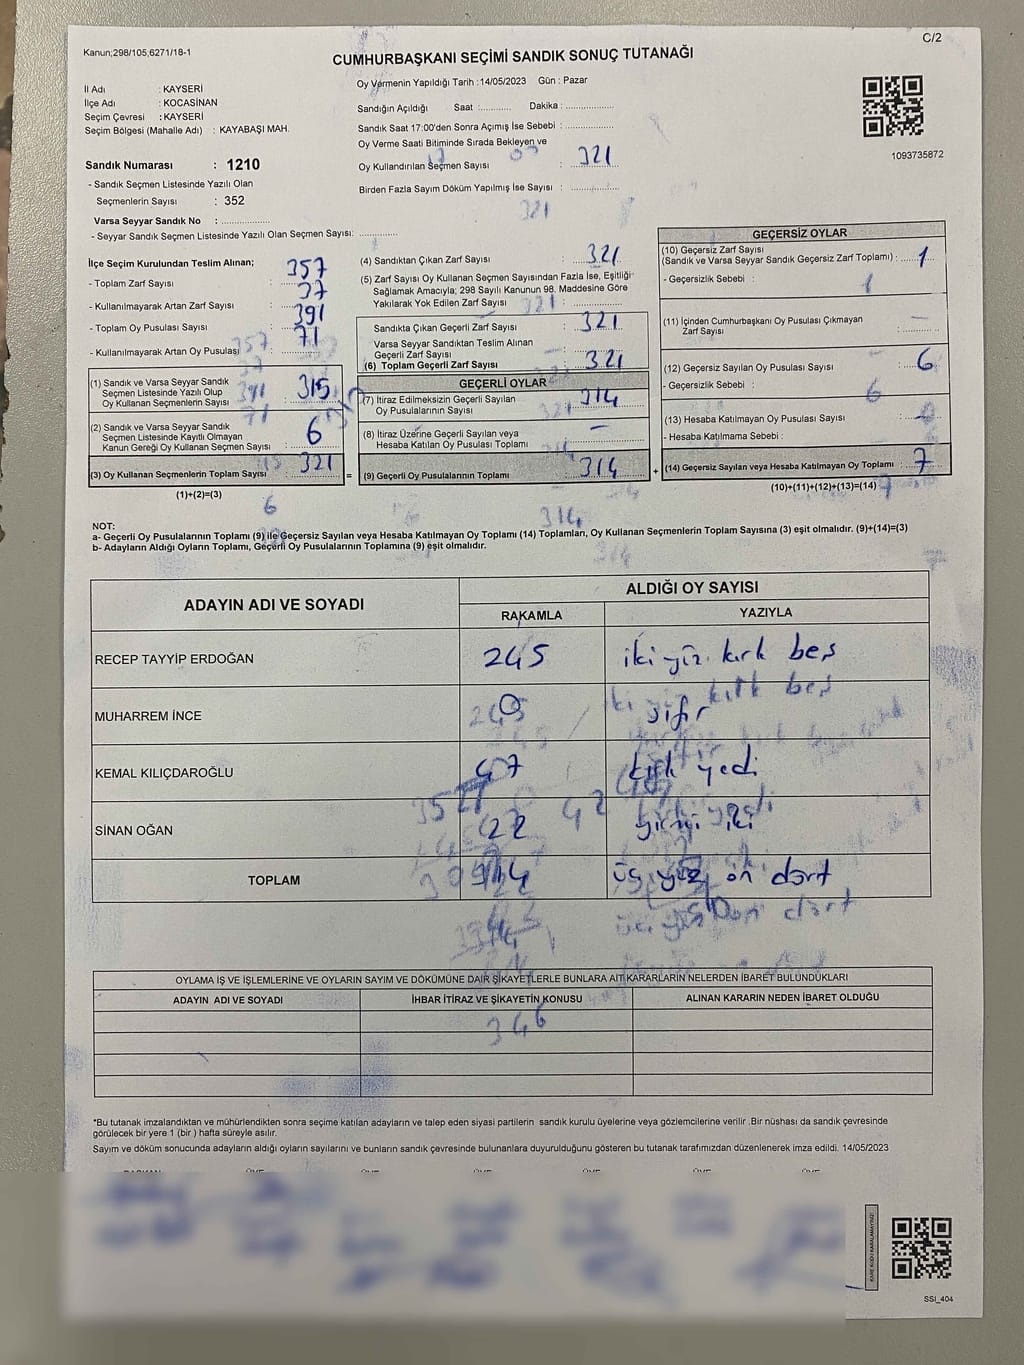 Kanun;298/105,6271/18-1
C/2
CUMHURBAŞKANI SEÇİMİ SANDIK SONUÇ TUTANAĞI
İl Adı : KAYSERİ
İlçe Adı : KOCASİNAN
Seçim Çevresi : KAYSERİ
Seçim Bölgesi (Mahalle Adı) : KAYABAŞI MAH.
Sandık Numarası : 1210
- Sandık Seçmen Listesinde Yazılı Olan
Seçmenlerin Sayısı : 352
Varsa Seyyar Sandık No : ..................
- Seyyar Sandık Seçmen Listesinde Yazılı Olan Seçmen Sayısı: ..............
Oy Vermenin Yapıldığı Tarih : 14/05/2023 Gün : Pazar
Sandığın Açıldığı Saat :........... Dakika : .................
Sandık Saat 17:00'den Sonra Açımış İse Sebebi : .................
Oy Verme Saati Bitiminde Sırada Bekleyen ve
Oy Kullandırılan Seçmen Sayısı : 321
Birden Fazla Sayım Döküm Yapılmış İse Sayısı : .................
321
1093735872
İlçe Seçim Kurulundan Teslim Alınan;
- Toplam Zarf Sayısı : 357
- Kullanılmayarak Artan Zarf Sayısı : 37
- Toplam Oy Pusulası Sayısı : 391
- Kullanılmayarak Artan Oy Pusulası : 71
(1) Sandık ve Varsa Seyyar Sandık
Seçmen Listesinde Yazılı Olup
Oy Kullanan Seçmenlerin Sayısı : 315
(2) Sandık ve Varsa Seyyar Sandık
Seçmen Listesinde Kayıtlı Olmayan
Kanun Gereği Oy Kullanan Seçmen Sayısı : 6
(3) Oy Kullanan Seçmenlerin Toplam Sayısı : 321
(1)+(2)=(3)
6
(4) Sandıktan Çıkan Zarf Sayısı : 321
(5) Zarf Sayısı Oy Kullanan Seçmen Sayısından Fazla İse, Eşitliği
Sağlamak Amacıyla; 298 Sayılı Kanunun 98. Maddesine Göre
Yakılarak Yok Edilen Zarf Sayısı : .................
Sandıkta Çıkan Geçerli Zarf Sayısı : 321
Varsa Seyyar Sandıktan Teslim Alınan
Geçerli Zarf Sayısı : –
(6) Toplam Geçerli Zarf Sayısı : 321
GEÇERLİ OYLAR
(7) İtiraz Edilmeksizin Geçerli Sayılan
Oy Pusulalarının Sayısı : 314
(8) İtiraz Üzerine Geçerli Sayılan veya
Hesaba Katılan Oy Pusulası Toplamı : –
= (9) Geçerli Oy Pusulalarının Toplamı : 314
314
GEÇERSİZ OYLAR
(10) Geçersiz Zarf Sayısı
(Sandık ve Varsa Seyyar Sandık Geçersiz Zarf Toplamı) : 1
- Geçersizlik Sebebi : 1
(11) İçinden Cumhurbaşkanı Oy Pusulası Çıkmayan
Zarf Sayısı : –
(12) Geçersiz Sayılan Oy Pusulası Sayısı : 6
- Geçersizlik Sebebi : 6
(13) Hesaba Katılmayan Oy Pusulası Sayısı :
- Hesaba Katılmama Sebebi :
+ (14) Geçersiz Sayılan veya Hesaba Katılmayan Oy Toplamı : 7
(10)+(11)+(12)+(13)=(14)
NOT:
a- Geçerli Oy Pusulalarının Toplamı (9) ile Geçersiz Sayılan veya Hesaba Katılmayan Oy Toplamı (14) Toplamları, Oy Kullanan Seçmenlerin Toplam Sayısına (3) eşit olmalıdır. (9)+(14)=(3)
b- Adayların Aldığı Oyların Toplamı, Geçerli Oy Pusulalarının Toplamına (9) eşit olmalıdır.
ADAYIN ADI VE SOYADI
ALDIĞI OY SAYISI
RAKAMLA YAZIYLA
RECEP TAYYİP ERDOĞAN 245 iki yüz kırk beş
MUHARREM İNCE 0 sıfır
KEMAL KILIÇDAROĞLU 47 kırk yedi
SİNAN OĞAN 22 yirmi iki
TOPLAM 314 üç yüz on dört
OYLAMA İŞ VE İŞLEMLERİNE VE OYLARIN SAYIM VE DÖKÜMÜNE DAİR ŞİKAYETLERLE BUNLARA AİT KARARLARIN NELERDEN İBARET BULUNDUKLARI
ADAYIN ADI VE SOYADI İHBAR İTİRAZ VE ŞİKAYETİN KONUSU ALINAN KARARIN NEDEN İBARET OLDUĞU
346
*Bu tutanak imzalandıktan ve mühürlendikten sonra seçime katılan adayların ve talep eden siyasi partilerin sandık kurulu üyelerine veya gözlemcilerine verilir .Bir nüshası da sandık çevresinde
görülecek bir yere 1 (bir ) hafta süreyle asılır.
Sayım ve döküm sonucunda adayların aldığı oyların sayılarını ve bunların sandık çevresinde bulunanlara duyurulduğunu gösteren bu tutanak tarafımızdan düzenlenerek imza edildi. 14/05/2023
KARE KODU KARALAMAYINIZ!
SSI_404